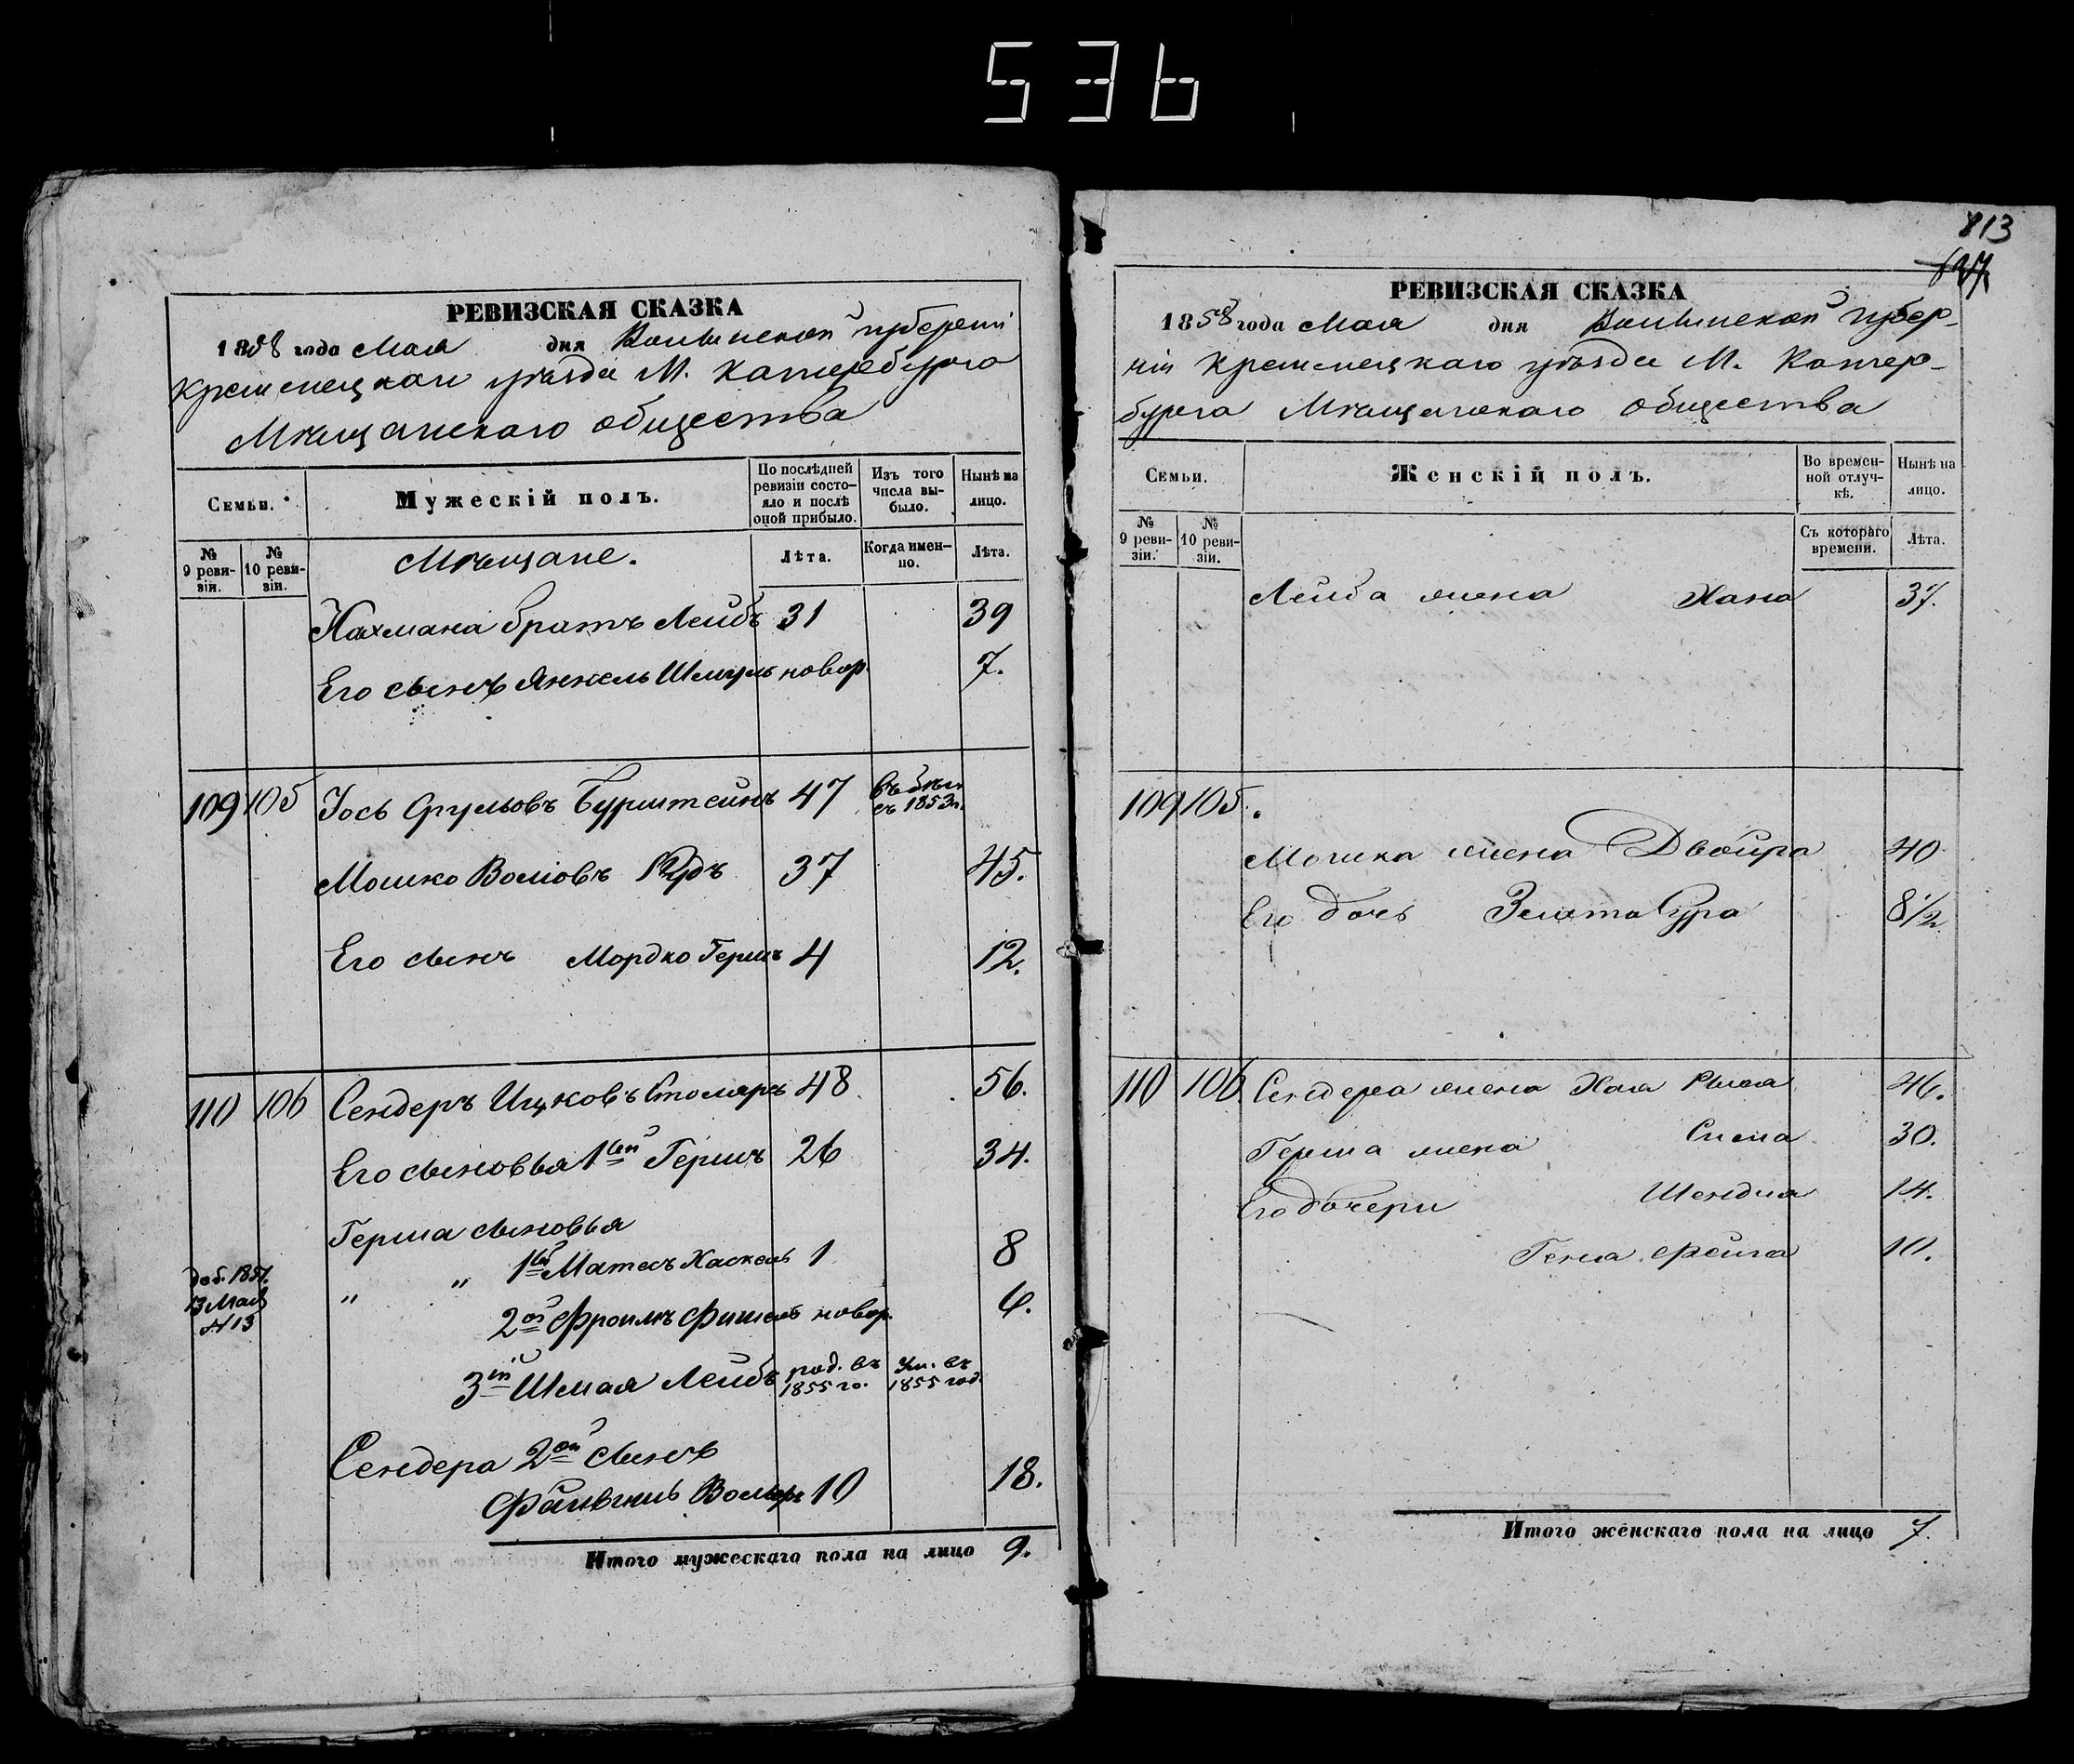 536
РЕВИЗСКАЯ СКАЗКА
1858 года Мая дня Волынской губернии
Кременецкаго уѣзда М. Катербурга
Мѣщанскаго общества
Семьи.
Мужескій полъ.
По послѣдней ревизіи состояло и послѣ оной прибыло.
Изъ того числа выбыло.
Нынѣ на лицо.
№ 9 ревизіи.
№ 10 ревизіи.
Мѣщане.
Лѣта.
Когда именно.
Лѣта.
Нахмана братъ Лейбъ 31 39
Его сынъ Янкель Шмуль новор. 7.
109 105 Іось Сруловъ Бурштейнъ 47 въ бѣгахъ съ 1853 г.
Мошко Волковъ 37 45.
Его сынъ Мордко Гершъ 4 12.
110 106 Сендеръ Ицковъ Столяръ 48 56.
Его сыновья 1ый Гершъ 26 34.
Герша сыновья
" " 1ый Матесъ Хаскель 1 8
доб. 1851.
13 Мая
№ 13
2ой Фроимъ Фишель новор. 6.
3ій Шмая Лейбъ род. въ 1855 го. ум. въ 1855 год.
Сендера 2ой сынъ
Файвишь Вольфъ 10 18.
Итого мужескаго пола на лицо 9.
813
РЕВИЗСКАЯ СКАЗКА
1858 года Мая дня Волынской губер-
ніи Кременецкаго уѣзда М. Катер-
бурга Мѣщанскаго общества
Семьи.
Женскій полъ.
Во временной отлучкѣ.
Нынѣ на лицо.
№ 9 ревизіи.
№ 10 ревизіи.
Съ котораго времени.
Лѣта.
Лейба жена Хана 37.
109 105.
Мошка жена Двойра 40
Его дочь Злата Сура 8 1/2
110 106 Сендера жена Хая Рыся 46.
Герша жена 30.
Его дочери Шендля 14.
Геня Фейга 10.
Итого женскаго пола на лицо 7.